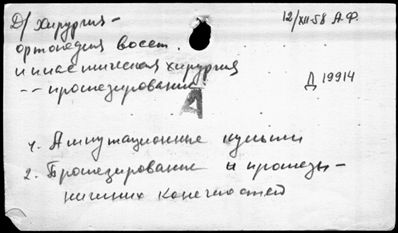 Д/ Хирургия -
ортопедия восст.
и пластическая хирургия
-- протезирование
12/XII-58 А.Ф.
Д 19914
А
1. Ампутационные культи
2. Протезирование и протезы -
нижних конечностей